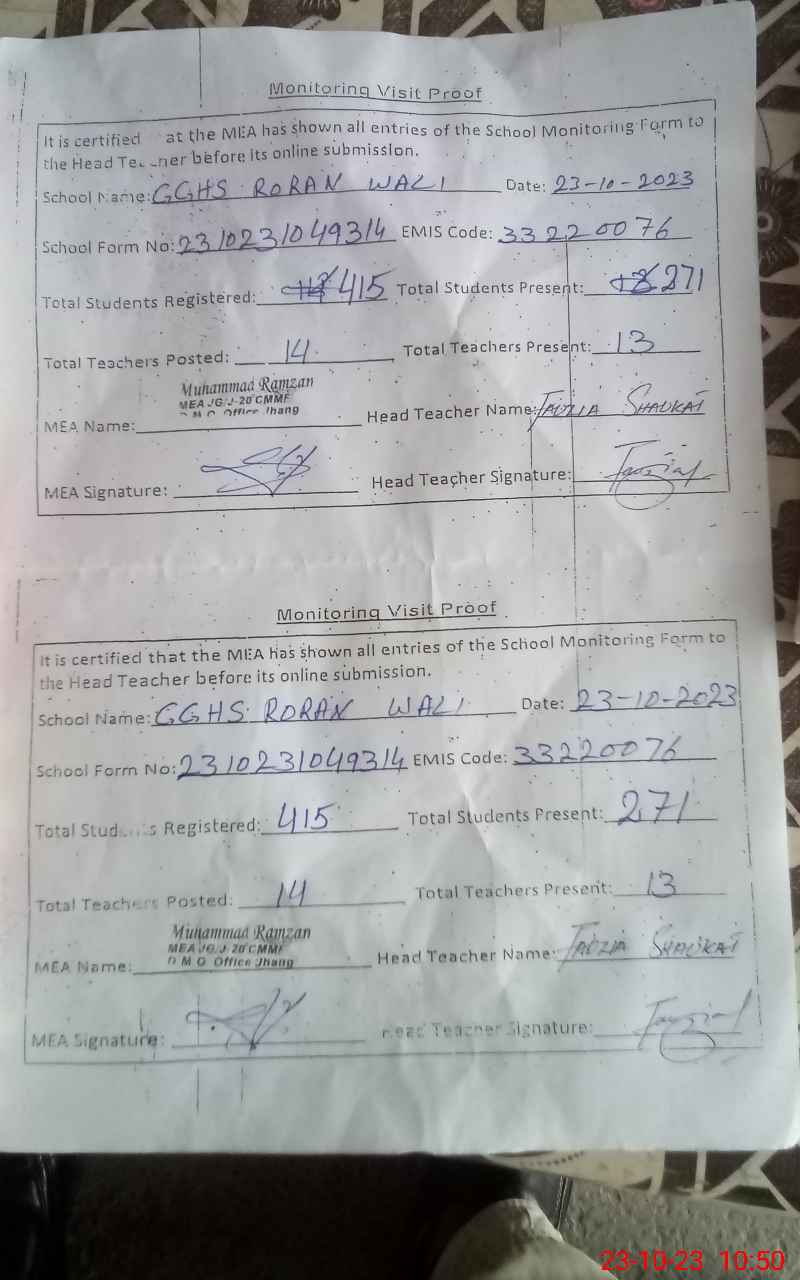 Monitoring Visit Proof
It is certified at the MEA has shown all entries of the School Monitoring Form to
the Head Teacher before its online submission.
School Name: GGHS RORAN WALI Date: 23-10-2023
School Form No: 2310231049314 EMIS Code: 33220076
Total Students Registered: 415 Total Students Present: 271
Total Teachers Posted: 14 Total Teachers Present: 13
Muhammad Ramzan
MEA JG/J-20 CMMF
D M O Office Jhang
MEA Name: Head Teacher Name: FAUZIA SHAUKAT
MEA Signature: Head Teacher Signature:
Monitoring Visit Proof
It is certified that the MEA has shown all entries of the School Monitoring Form to
the Head Teacher before its online submission.
School Name: GGHS RORAN WALI Date: 23-10-2023
School Form No: 2310231049314 EMIS Code: 33220076
Total Students Registered: 415 Total Students Present: 271
Total Teachers Posted: 14 Total Teachers Present: 13
Muhammad Ramzan
MEA JG/J-20 CMMF
D M O Office Jhang
MEA Name: Head Teacher Name: FAUZIA SHAUKAT
MEA Signature: Head Teacher Signature:
23-10-23 10:50